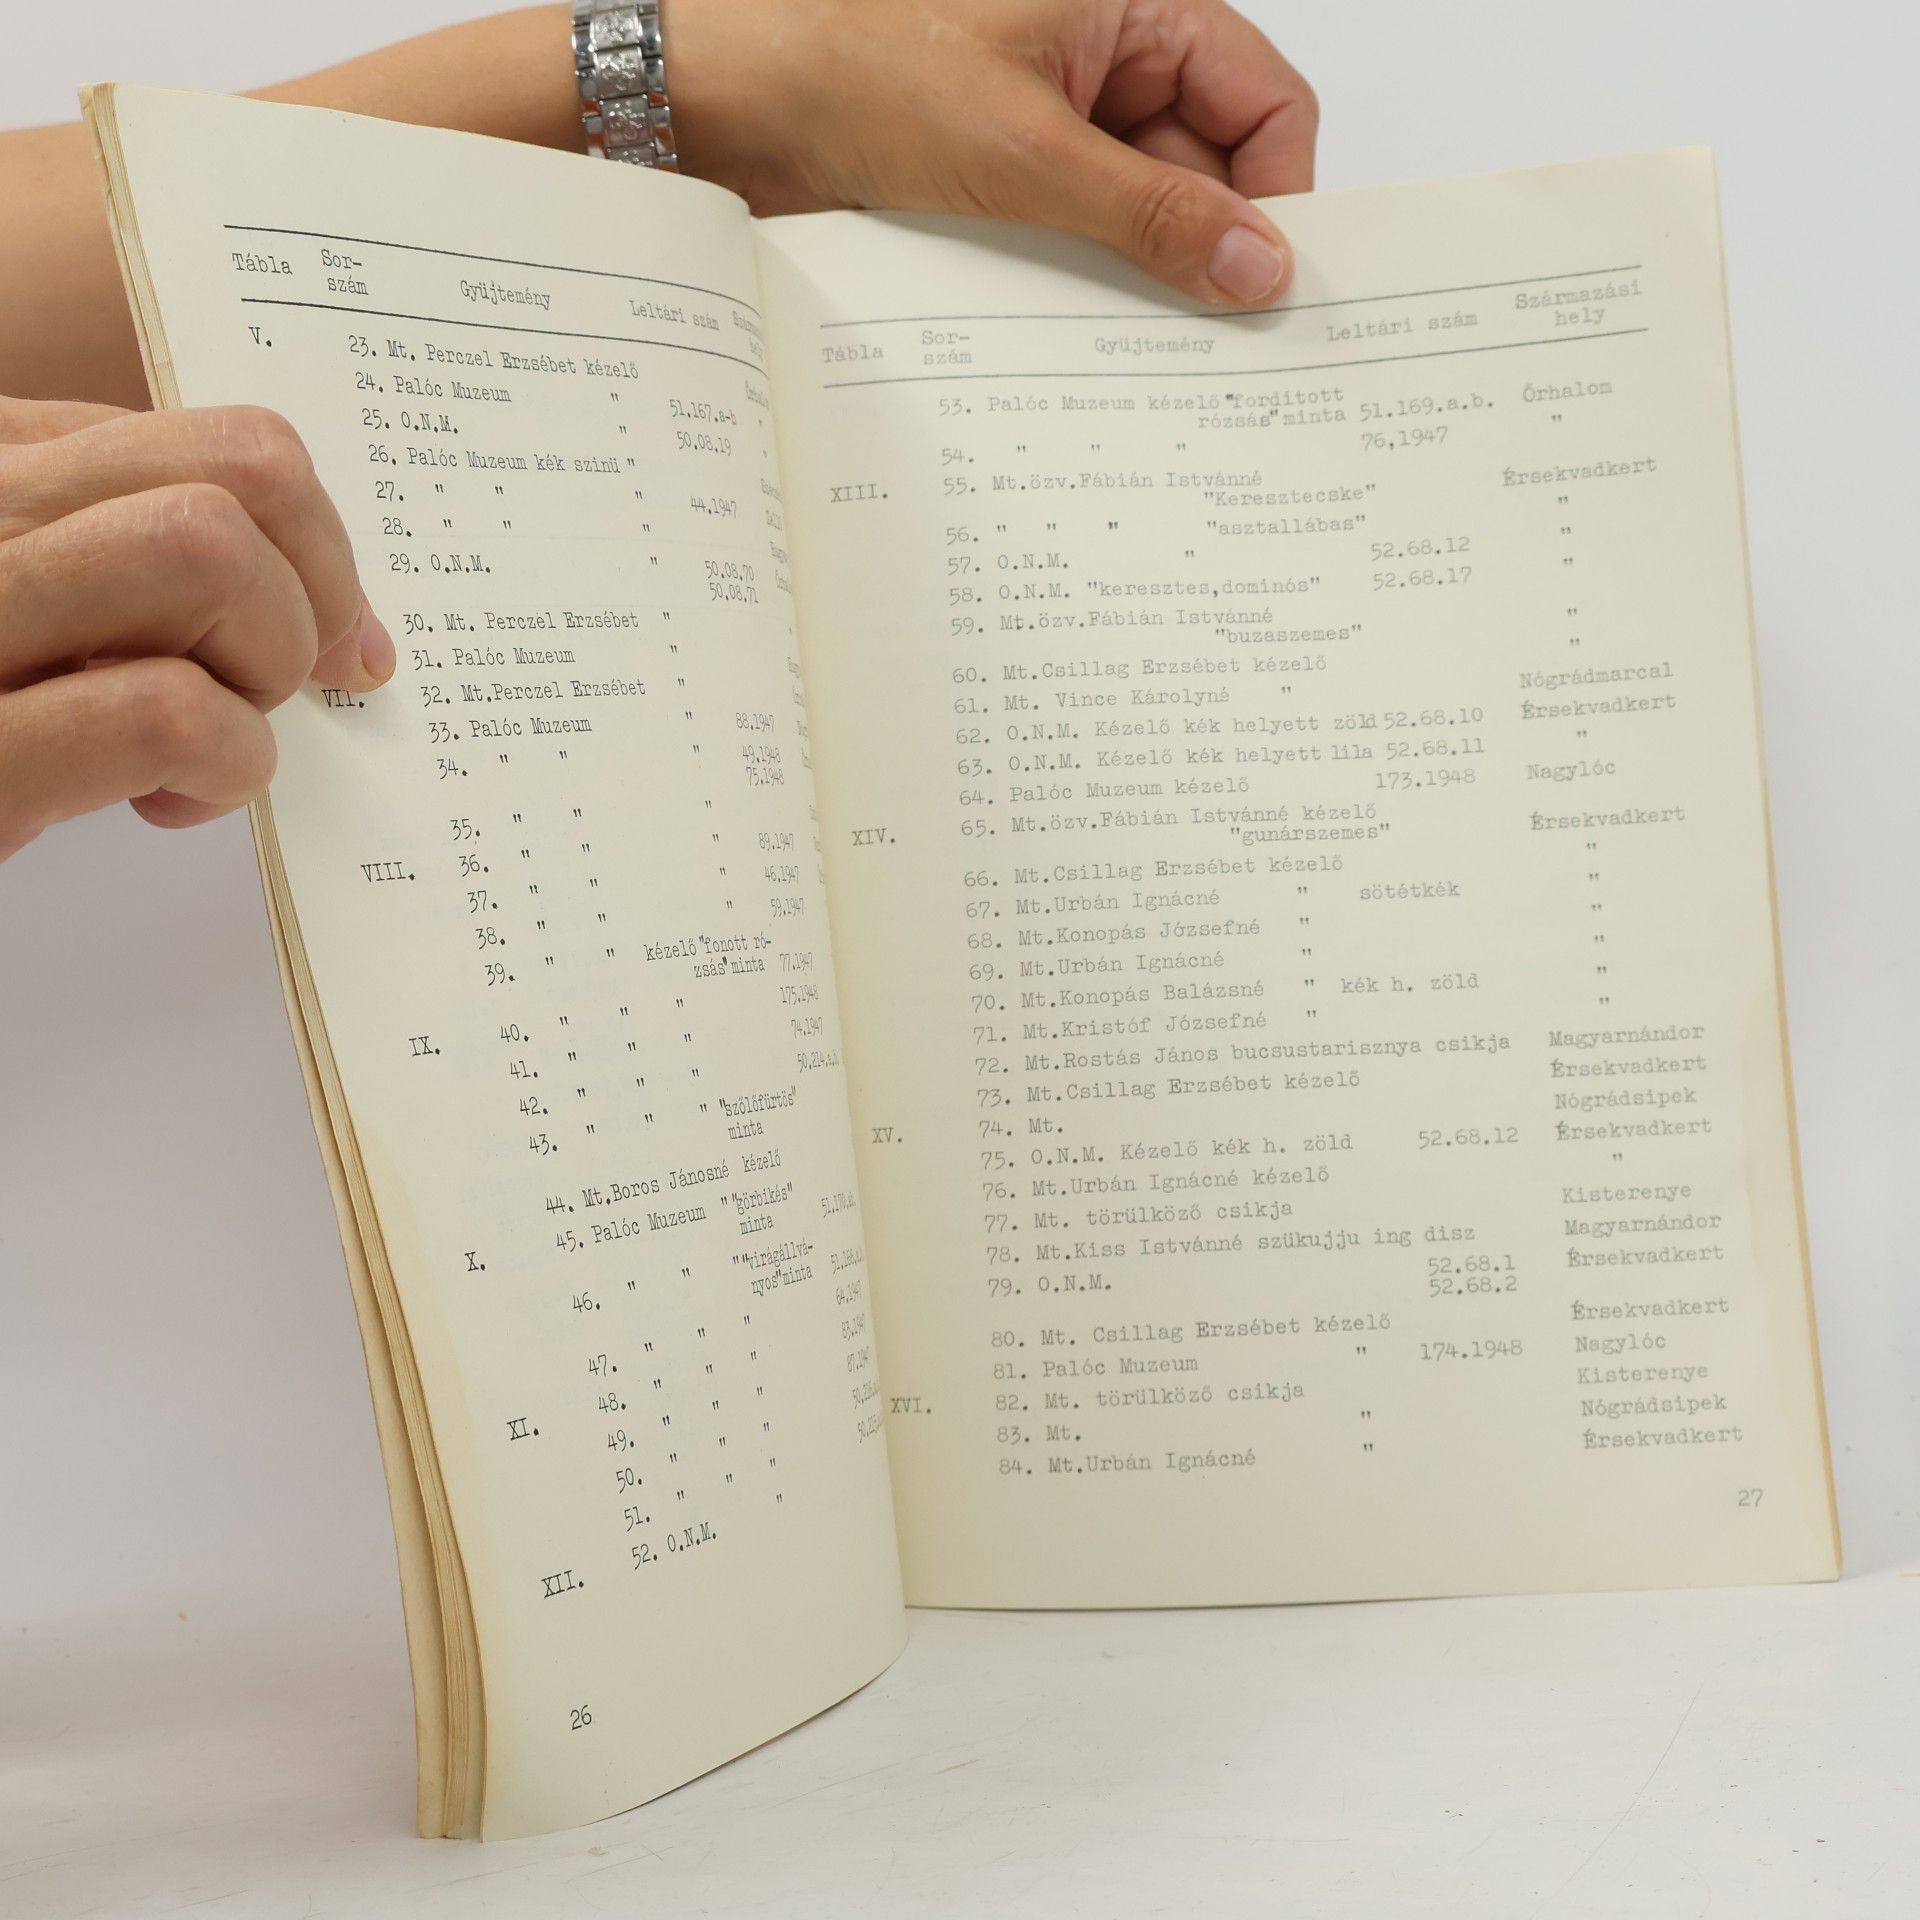 Tábla Sor- Gyüjtemény Leltári szám
szám
V. 23. Mt. Perczel Erzsébet kézelő
24. Palóc Muzeum " 51.167.a-b
25. O.N.M. " 50.08.19
26. Palóc Muzeum kék szinü "
27. " " " 44.1947
28. " " "
29. O.N.M. " 50.08.70
50.08.71
30. Mt. Perczel Erzsébet "
31. Palóc Muzeum "
VII. 32. Mt.Perczel Erzsébet "
33. Palóc Muzeum " 88.1947
34. " " " 49.1948
75.1948
35. " " "
VIII. 36. " " " 89.1947
37. " " " 46.1947
38. " " " 59.1947
39. " " kézelő "fonott ró-
zsás" minta 77.1947
IX. 40. " " " 175.1948
41. " " " 74.1947
42. " " " 50.214.a.b
43. " " " "szőlőfürtös"
minta
44. Mt.Boros Jánosné kézelő
X. 45. Palóc Muzeum " "görbikés"
minta 51.170.a.b.
46. " " " "virágállvá-
nyos" minta 51.168.a.b
47. " " " 64.1947
48. " " " 83.1947
XI. 49. " " " 87.1947
50. " " "
51. " " "
XII. 52. O.N.M. "
26
Tábla Sor- Gyüjtemény Leltári szám Származási
szám hely
53. Palóc Muzeum kézelő "forditott
rózsás" minta 51.169.a.b. Őrhalom
54. " " " 76,1947 "
XIII. 55. Mt.özv.Fábián Istvánné Érsekvadkert
"Keresztecske"
56. " " " "asztallábas" "
57. O.N.M. " 52.68.12 "
58. O.N.M. "keresztes,dominós" 52.68.17 "
59. Mt.özv.Fábián Istvánné
"buzaszemes" "
60. Mt.Csillag Erzsébet kézelő "
61. Mt. Vince Károlyné " Nógrádmarcal
62. O.N.M. Kézelő kék helyett zöld 52.68.10 Érsekvadkert
63. O.N.M. Kézelő kék helyett lila 52.68.11 "
64. Palóc Muzeum kézelő 173.1948 Nagylóc
XIV. 65. Mt.özv.Fábián Istvánné kézelő
"gunárszemes" Érsekvadkert
66. Mt.Csillag Erzsébet kézelő "
67. Mt.Urbán Ignácné " sötétkék "
68. Mt.Konopás Józsefné " "
69. Mt.Urbán Ignácné " "
70. Mt.Konopás Balázsné " kék h. zöld "
71. Mt.Kristóf Józsefné " "
72. Mt.Rostás János bucsustarisznya csikja Magyarnándor
73. Mt.Csillag Erzsébet kézelő Érsekvadkert
XV. 74. Mt. Nógrádsipek
75. O.N.M. Kézelő kék h. zöld 52.68.12 Érsekvadkert
76. Mt.Urbán Ignácné kézelő "
77. Mt. törülköző csikja Kisterenye
78. Mt.Kiss Istvánné szükujju ing disz Magyarnándor
79. O.N.M. 52.68.1 Érsekvadkert
52.68.2
80. Mt. Csillag Erzsébet kézelő Érsekvadkert
81. Palóc Muzeum " 174.1948 Nagylóc
XVI. 82. Mt. törülköző csikja Kisterenye
83. Mt. " Nógrádsipek
84. Mt.Urbán Ignácné " Érsekvadkert
27